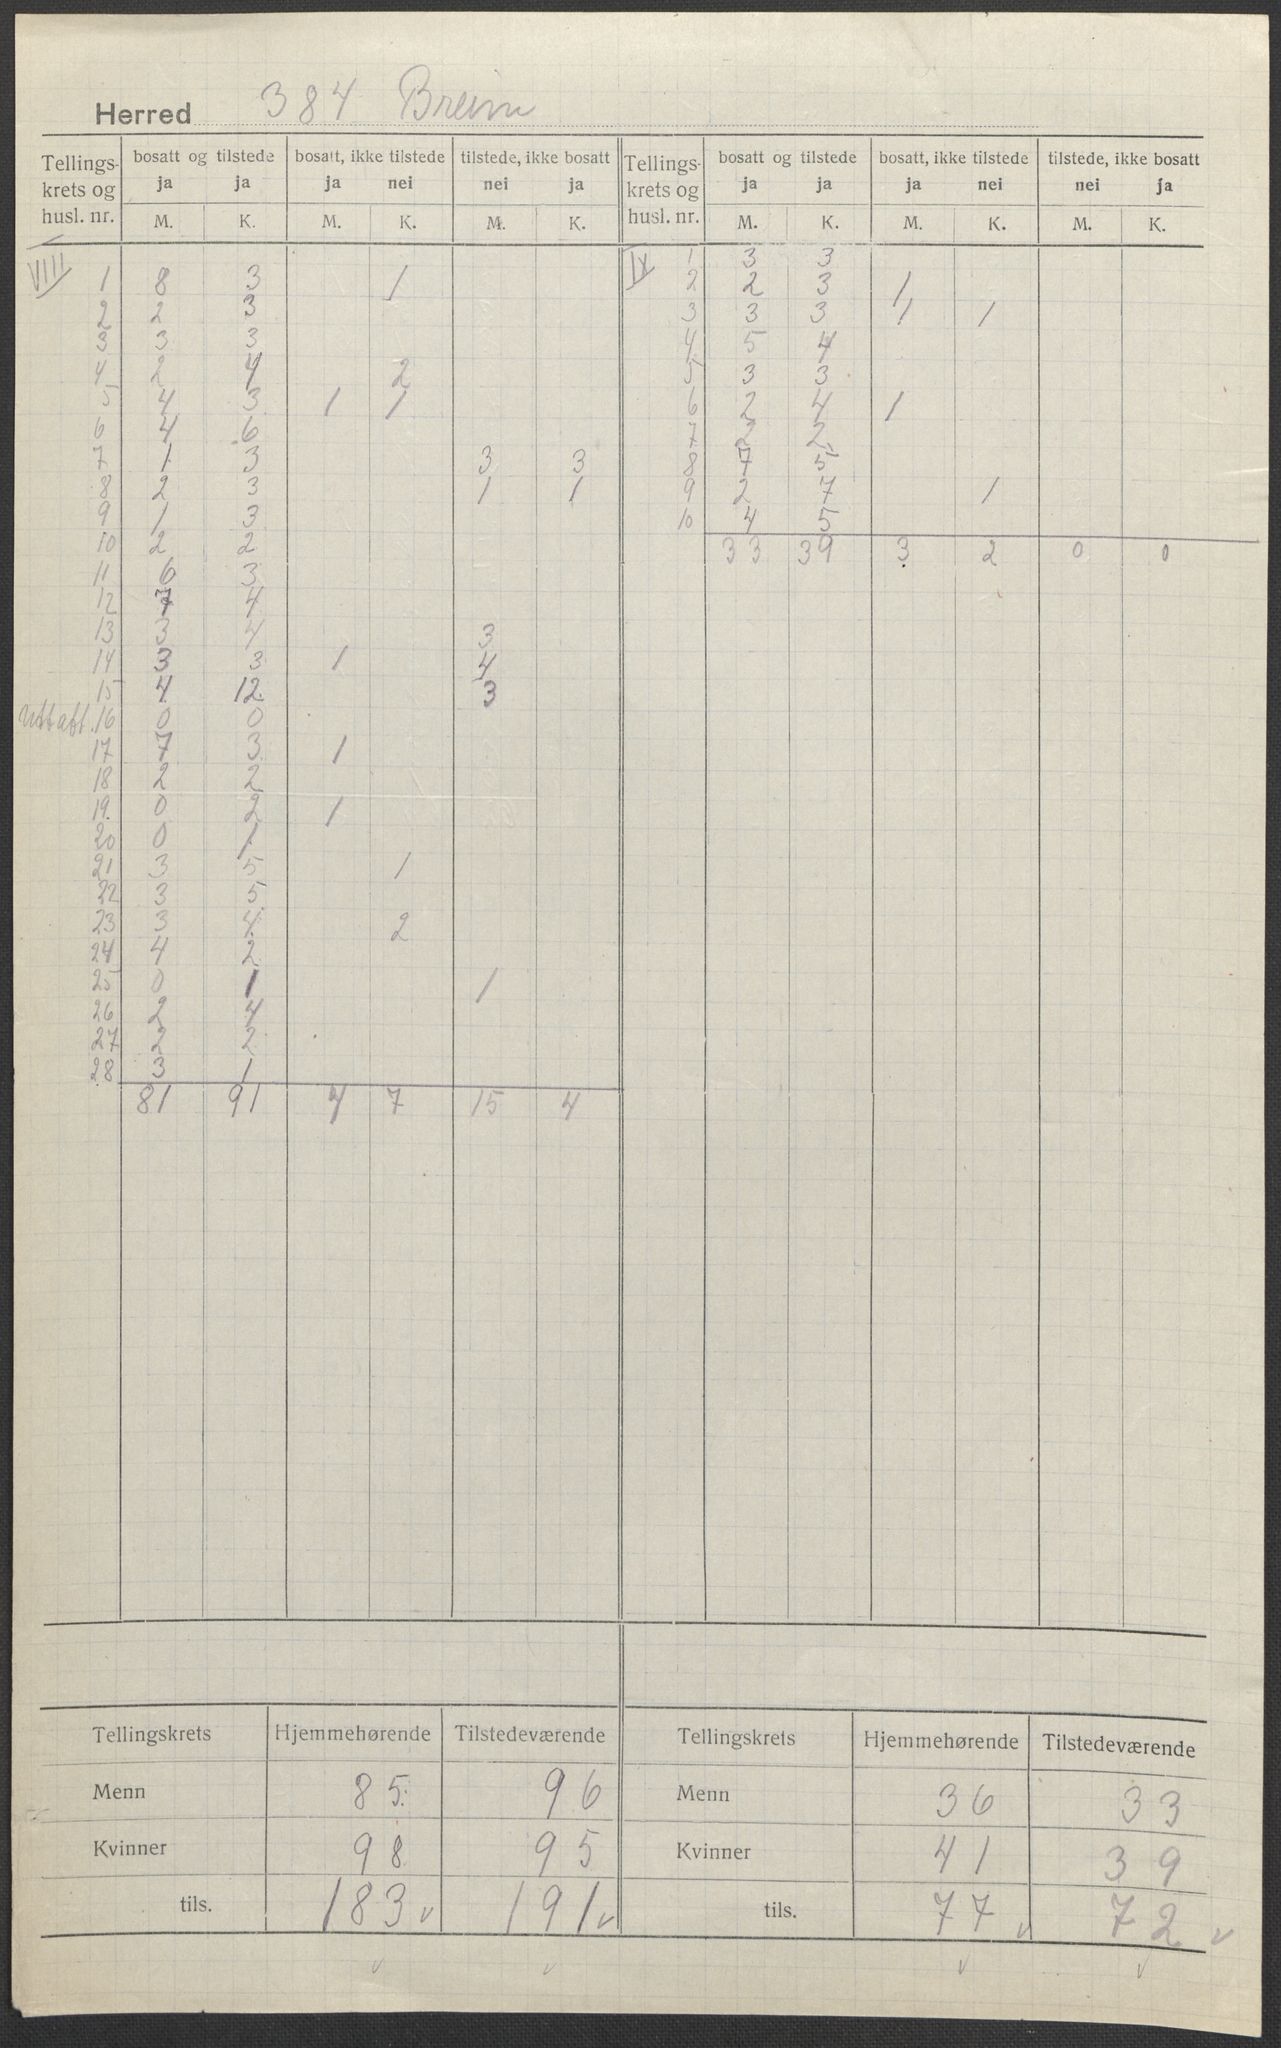 Herred 384 Breim
Tellings-krets og husl. nr. | bosatt og tilstede ja ja | bosatt, ikke tilstede ja nei | tilstede, ikke bosatt nei ja | Tellings-krets og husl. nr. | bosatt og tilstede ja ja | bosatt, ikke tilstede ja nei | tilstede, ikke bosatt nei ja
M. K. M. K. M. K. M. K. M. K. M. K.
VIII
1 8 3 1
2 2 3
3 3 3
4 2 4 2
5 4 3 1 1
6 4 6
7 1 3 3 3
8 2 3 1 1
9 1 3
10 2 2
11 6 3
12 7 4
13 3 4 3
14 3 3 1 4
15 4 12 3
Uttatt. 16 0 0
17 7 3 1
18 2 2
19. 0 2 1
20 0 1
21 3 5 1
22 3 5
23 3 4 2
24 4 2
25 0 1 1
26 2 4
27 2 2
28 3 1
81 91 4 7 15 4
IX
1 3 3
2 2 3 1
3 3 3 1 1
4 5 4
5 3 3
6 2 4 1
7 2 2
8 7 5
9 2 7 1
10 4 5
33 39 3 2 0 0
Tellingskrets Hjemmehørende Tilstedeværende
Menn 85 96
Kvinner 98 95
tils. 183 v 191 v
Tellingskrets Hjemmehørende Tilstedeværende
Menn 36 33
Kvinner 41 39
tils. 77 v 72 v
v v v v